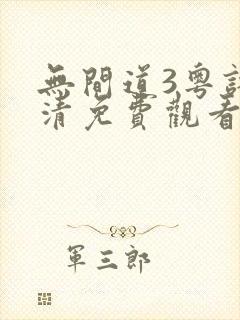 無間道3粵語
清免費觀看
軍三郎